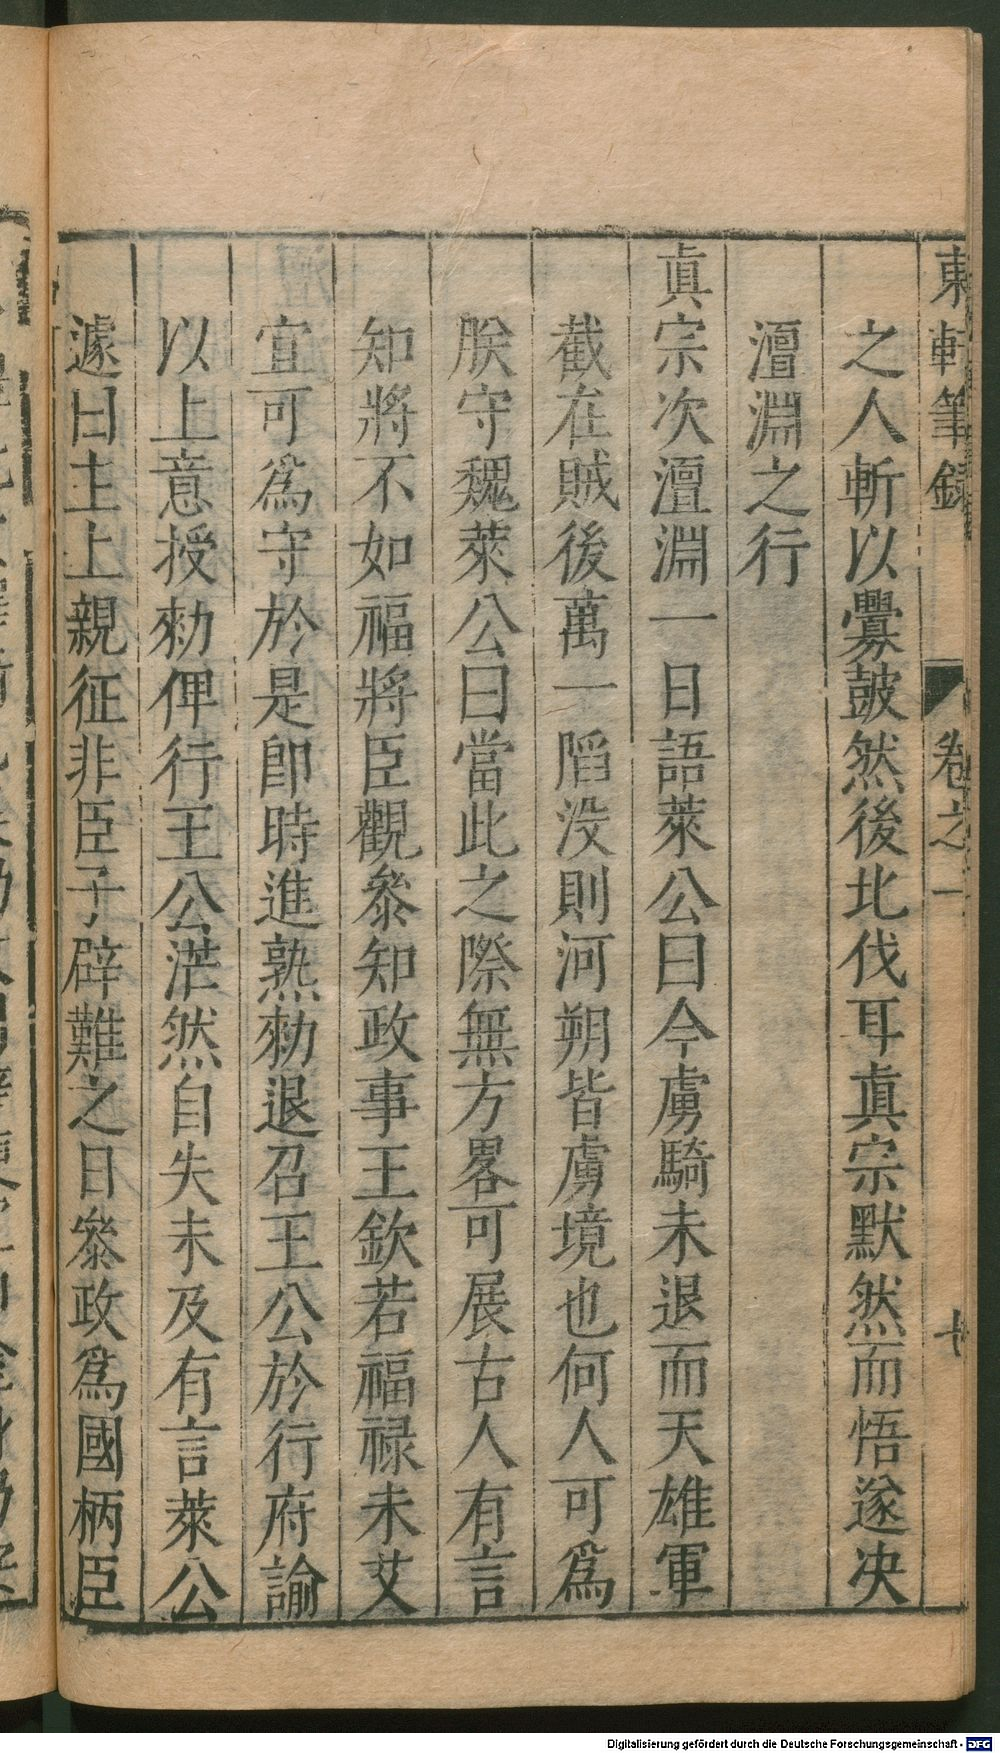 東軒筆錄 卷之一 十
之人斬以釁鼓然後北伐耳真宗默然而悟遂决
澶淵之行
眞宗次澶淵一日語萊公曰今虜騎未退而天雄軍
截在賊後萬一陷没則河朔皆虜境也何人可爲
朕守魏萊公曰當此之際無方畧可展古人有言
知將不如福將臣觀叅知政事王欽若福禄未艾
宜可爲守於是卽時進熟勑退召王公於行府諭
以上意授勑俾行王公茫然自失未及有言萊公
遽曰主上親征非臣子辟難之日叅政爲國柄臣
Digitalisierung gefördert durch die Deutsche Forschungsgemeinschaft - DFG